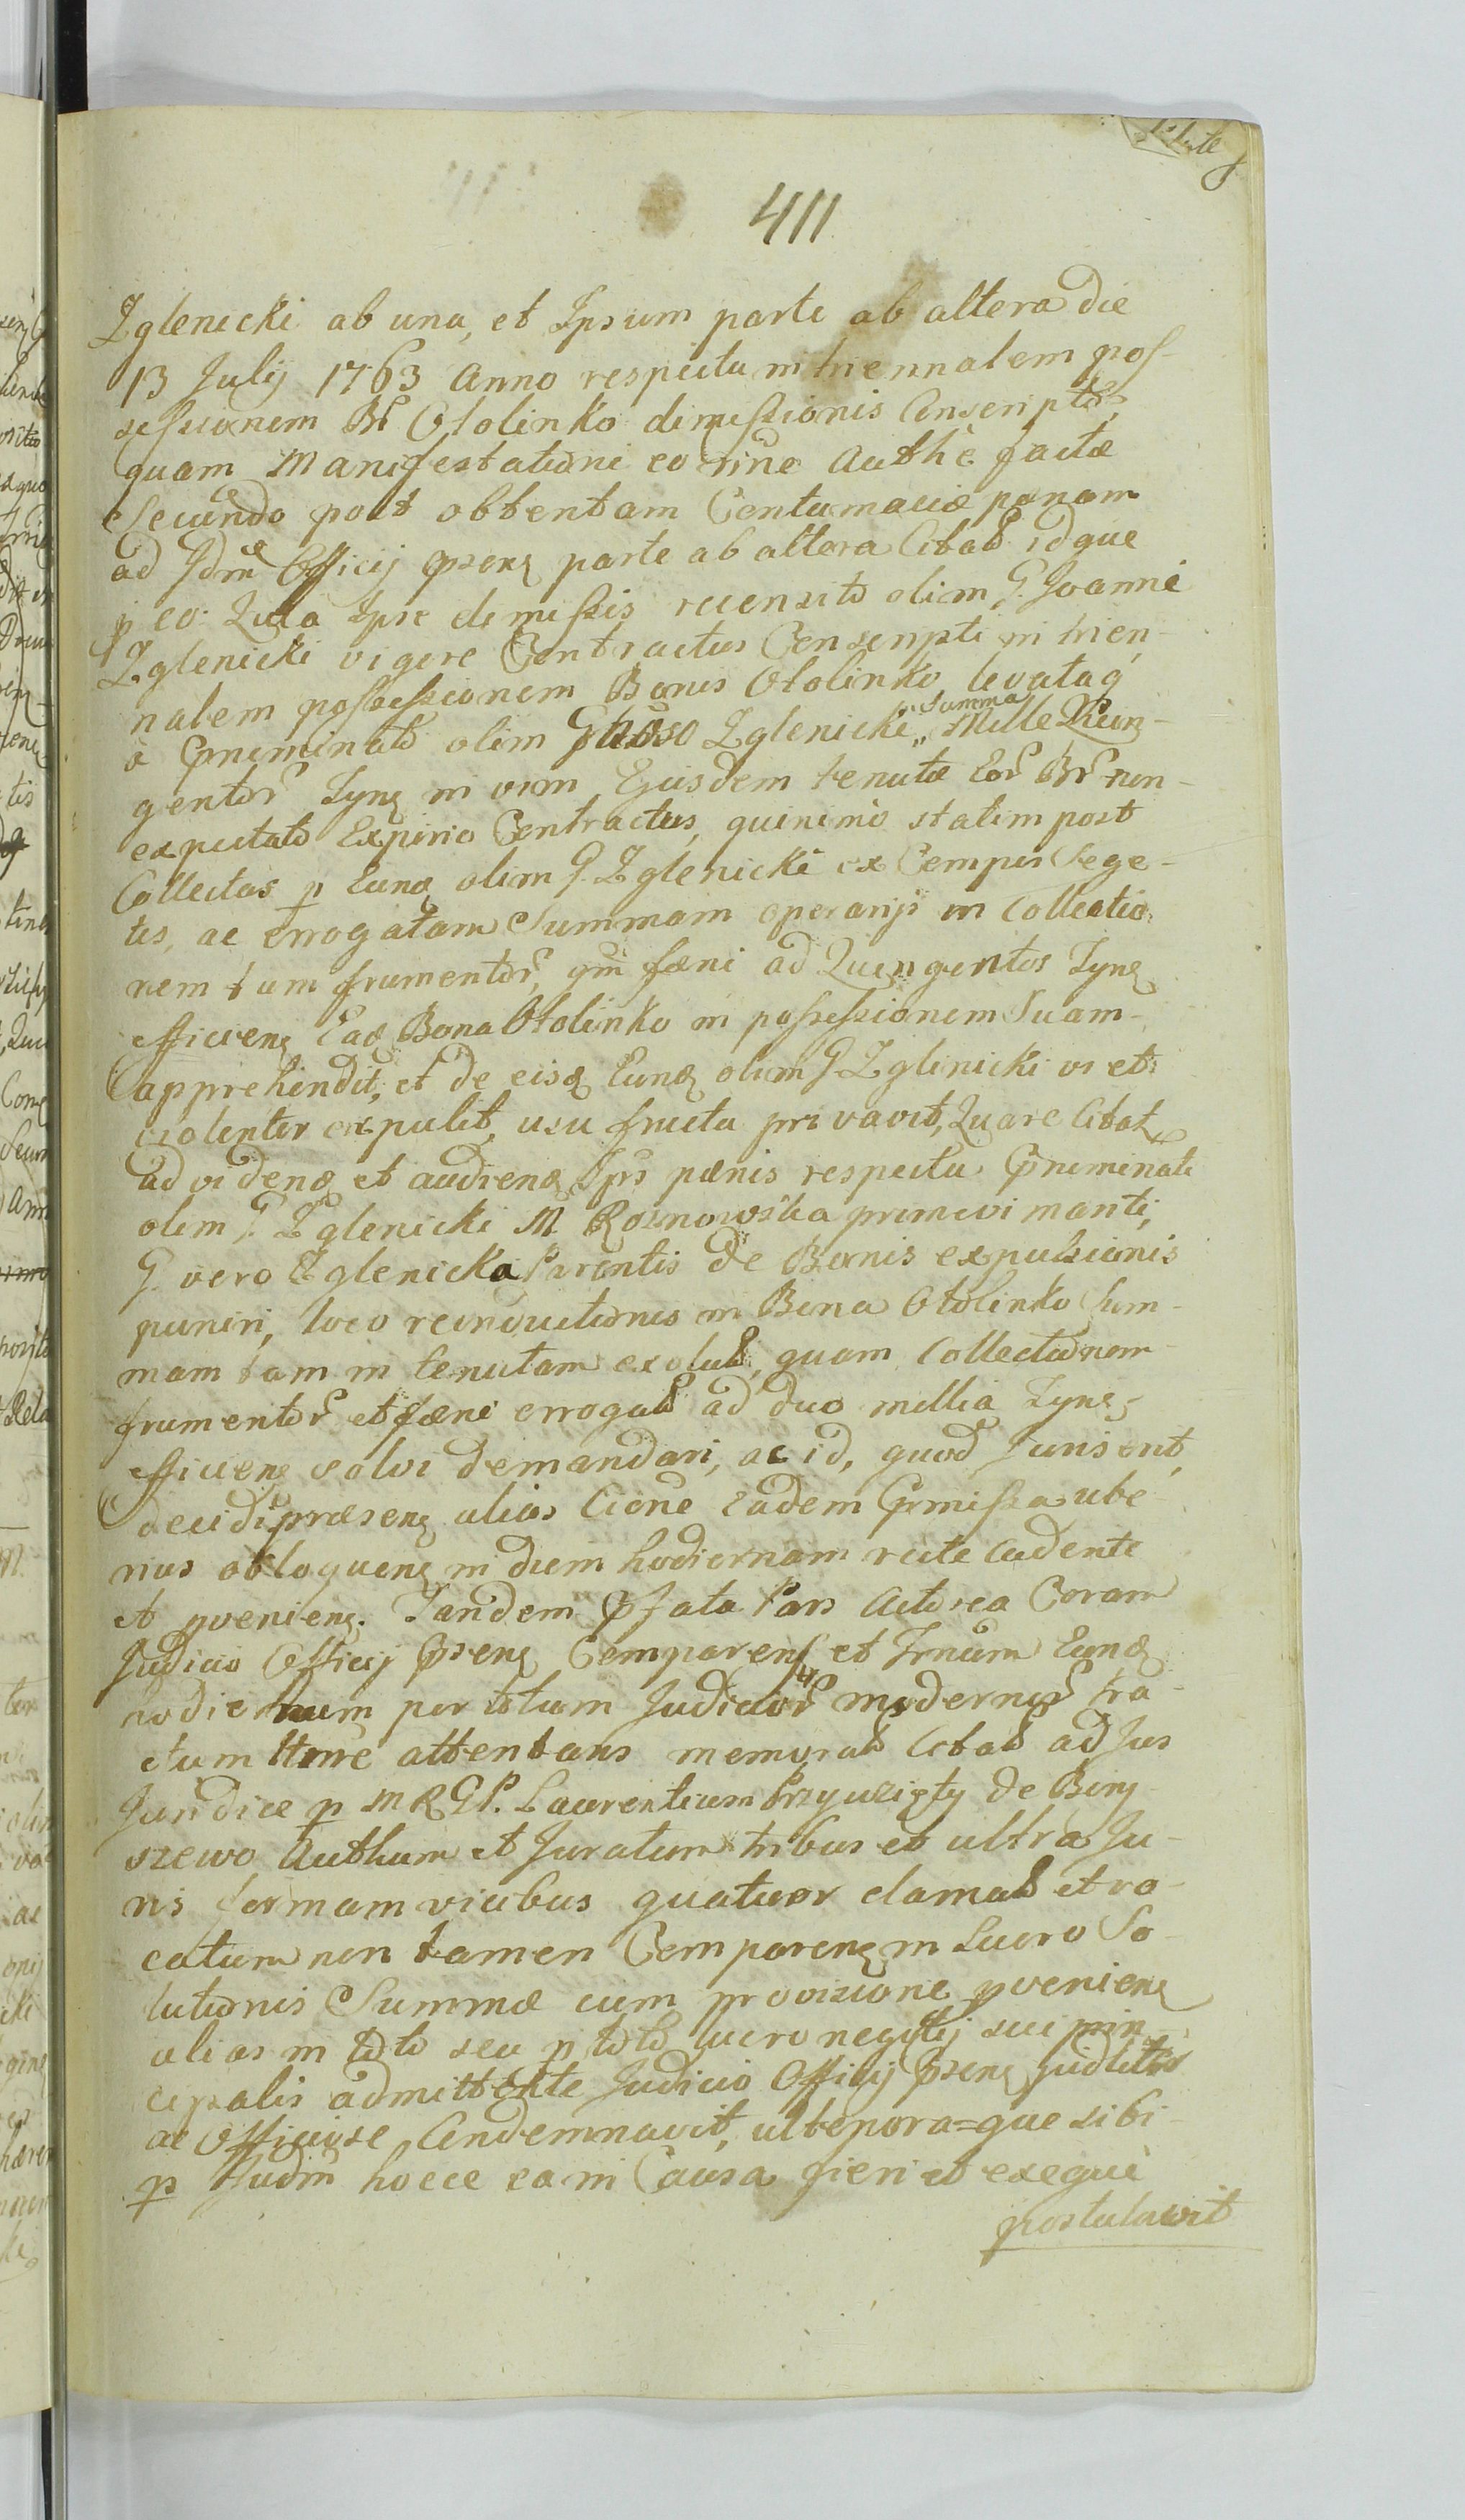 411
Zglenicki ab una, et Ipsum parte ab altera die
13 Julij 1763 Anno respectu in triennalem pos-
sessionem Br̃ Otolinko dimissionis Conscriptor̃,
quam Manifestationi eo nr̃ne Authẽ factæ
Secundo post obtentam Contumaciæ pænam
ad Jdm̃ Officij pr̃sens parte ab altera Citatũ idque
p eo: Quia Ipse dimissis recensito olim G. Joanni
Zglenicki vigore Contractus Conscripti in trien-
nalem possessionem Bonis Otolinko, levataq́
à Prnominato olim Gnõso Zglenicki „Summa Mille Quin-
gentor̃ Tyn̨ in vim Ejusdem tenutæ Eor̃ Br̃ non-
expectato Expirio Contractus, quinimò statim post
Collectas p Eund olim G. Zglenicki ex Campis Sege-
tes, ac errogatam Summam operarijs in Collectio-
nem tum frumentor̃, qm̃ fœni ad Quingentos Tyn̨
efficien̨ Ead Bona Otolinko in possessionem Suam-
apprehendit, et de eisd Eund olim G. Zglinicki vi et
violenter expulit, usu fructu privavit, Quare Citat
ad videnđ et audienđ Ipsũ pænis respectu Prnominati
olim G. Zglenicki M. Rosnowska primevi mariti,
G. vero Zglenicka Parentis de Bonis expulsionis
puniri, loco reinductionis in Bona Otolinko Sum-
mam tam in tenutam exolutã, quam Collectionem
frumentor̃ et fæni errogatã ad duo millia Tyn̨
efficien̨ solvi demandari, ac id, quod Juris erit,
decidi præsen̨ alias Cione Eadem Prmissa ube-
rius obloquen̨ in diem hodiernam rite cadente
et pvenien̨. Tandem Prfata Pars Actorea Coram
Judicio Officij Pr̃sen̨ Comparens et Trnum Eund
hodiernum per totum Judicior̃ modernor̃ tra-
ctum Ltmẽ attentans memoratũ Citatũ ad Jus
Juridice p MRGP. Laurentium Przyuzięty de Borg
szewo Authum et Juratum tribus et ultra Ju-
ris formam vicibus quatuor clamatũ et vo-
catum non tamen Comparen̨ in Lucro So-
lutionis Summæ cum provisione pvenien̨
alias in toto seu p toto lucro negotij sui prin-
cipalis admittente Judicio Officij Pr̃sen̨ Judlitẽr
ac Officiose Condemnavit, ulteriora=que sibi
p Judm̃ hocce ea in Causa fieri et exequi
postulavit